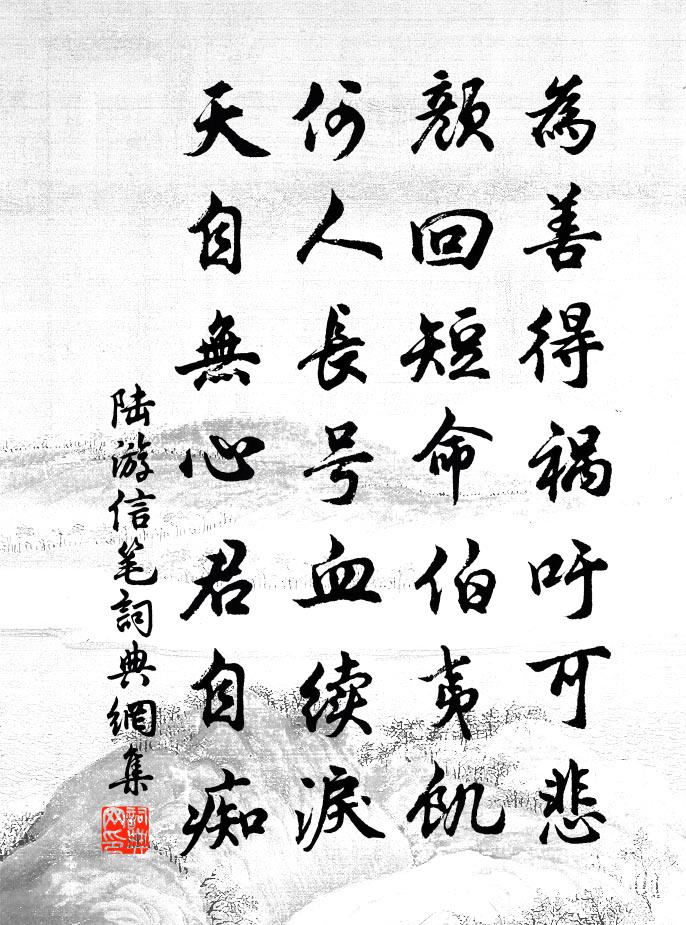 為善得禍吁可悲
顏回短命伯夷飢
何人長号血续淚
天自無心君自痴
陆游信笔詞典網集